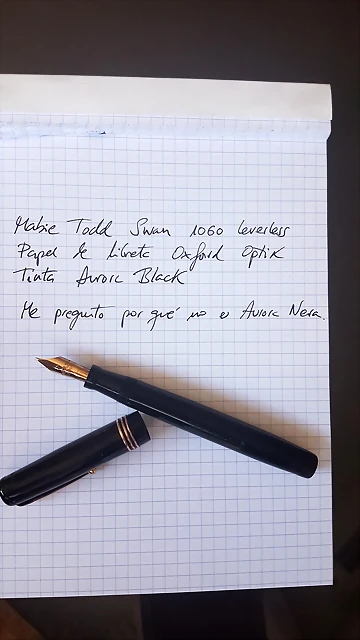 Mabie Todd Swan 1060 leverless
Papel de libreta Oxford Optik
Tinta Aurora Black
Me pregunto por qué no es Aurora Nera.